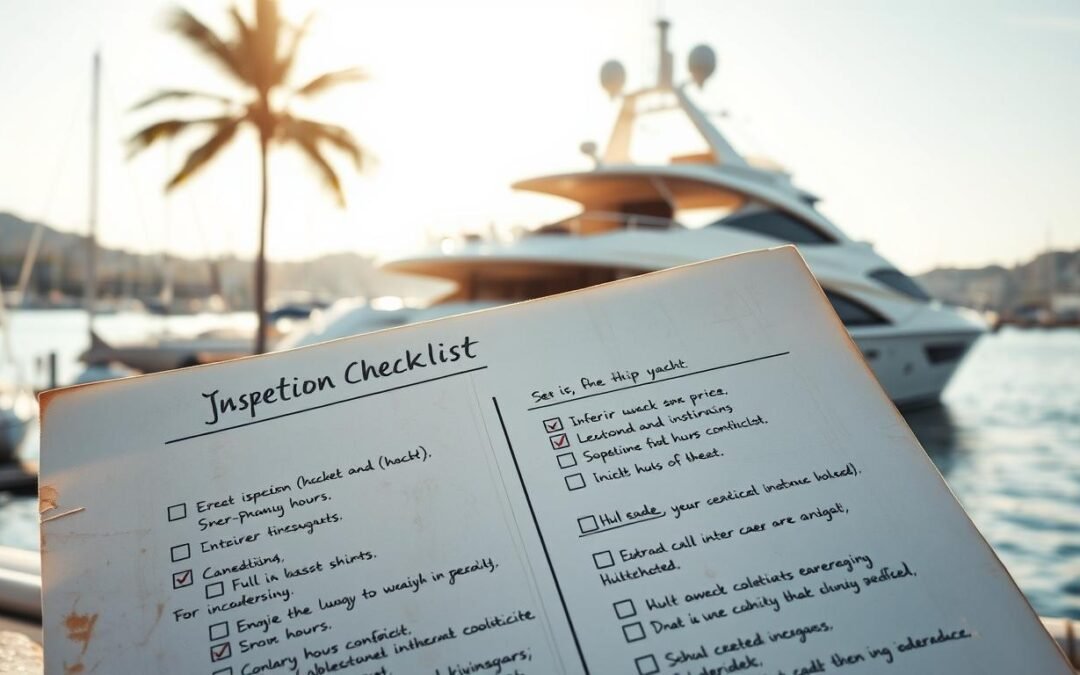 Jnspetion Checklist
Ereet ispeion (hecket and (hoct).
Sner-phamiy hours.
Entzirer tinesugarts.
Canedtiūns,
Full in basst shirts.
For incadersing.
Engie the luagy to weaiyh in peraily,
Snom hours.
Conlary hous confoict,
kivinsgars;
Ser is, fne thip yacht
Inferir wuck snx price,
Leotond and instirains
Sopstime fiot hurs conficlst,
Inictt huls of theet.
Hul sade, your cendical instrue holeed).
Extrad call inter caer are anigat,
Hulttehected.
Hult aweck coletiats earereging
Dnat is une cahiity that chuniy pedficed,
Schul creeted inergass,
cadt then ing oderaduce.